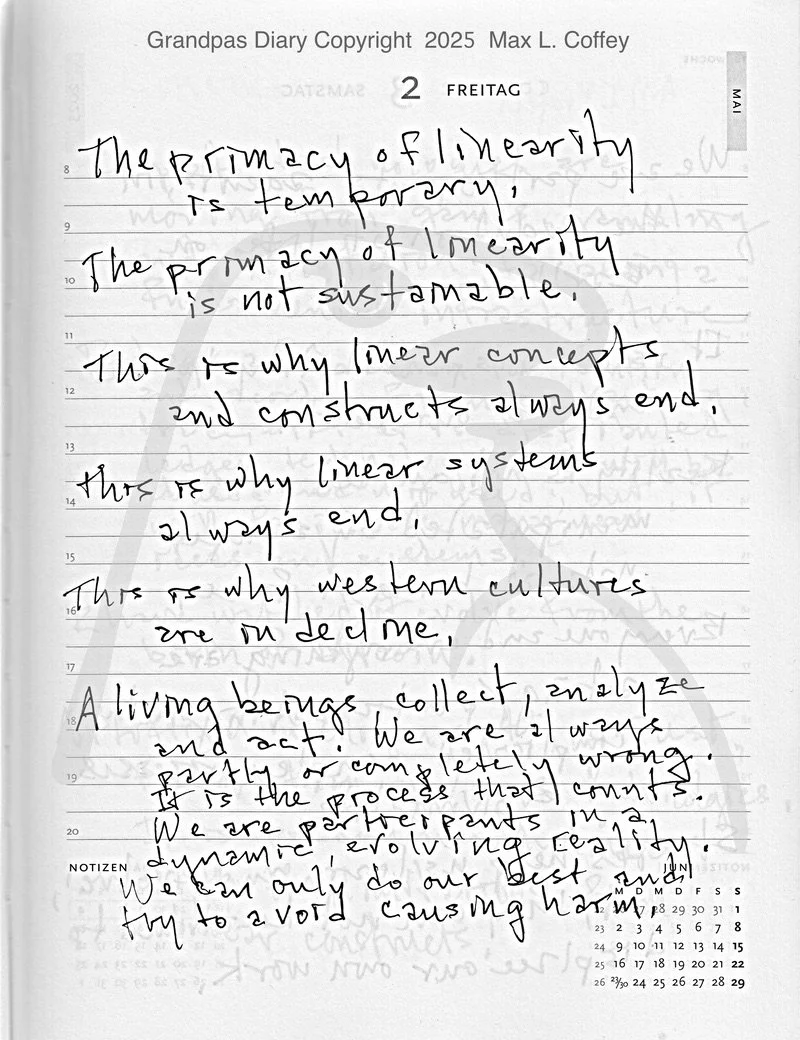 Grandpas Diary Copyright 2025 Max L. Coffey
2 FREITAG
MAI
8
The primacy of linearity
is temporary.
9
The primacy of linearity
10
is not sustainable.
11
This is why linear concepts
12
and constructs always end.
13
This is why linear systems
14
always end.
15
This is why western cultures
16
are in decline.
17
A living beings collect, analyze
18
and act. We are always
partly or completely wrong.
19
It is the process that counts.
We are participants in a
20
dynamic, evolving reality.
NOTIZEN
JUNI
We can only do our best and
try to avoid causing harm.
M D M D F S S
22 26 27 28 29 30 31 1
23 2 3 4 5 6 7 8
24 9 10 11 12 13 14 15
25 16 17 18 19 20 21 22
26 23/30 24 25 26 27 28 29